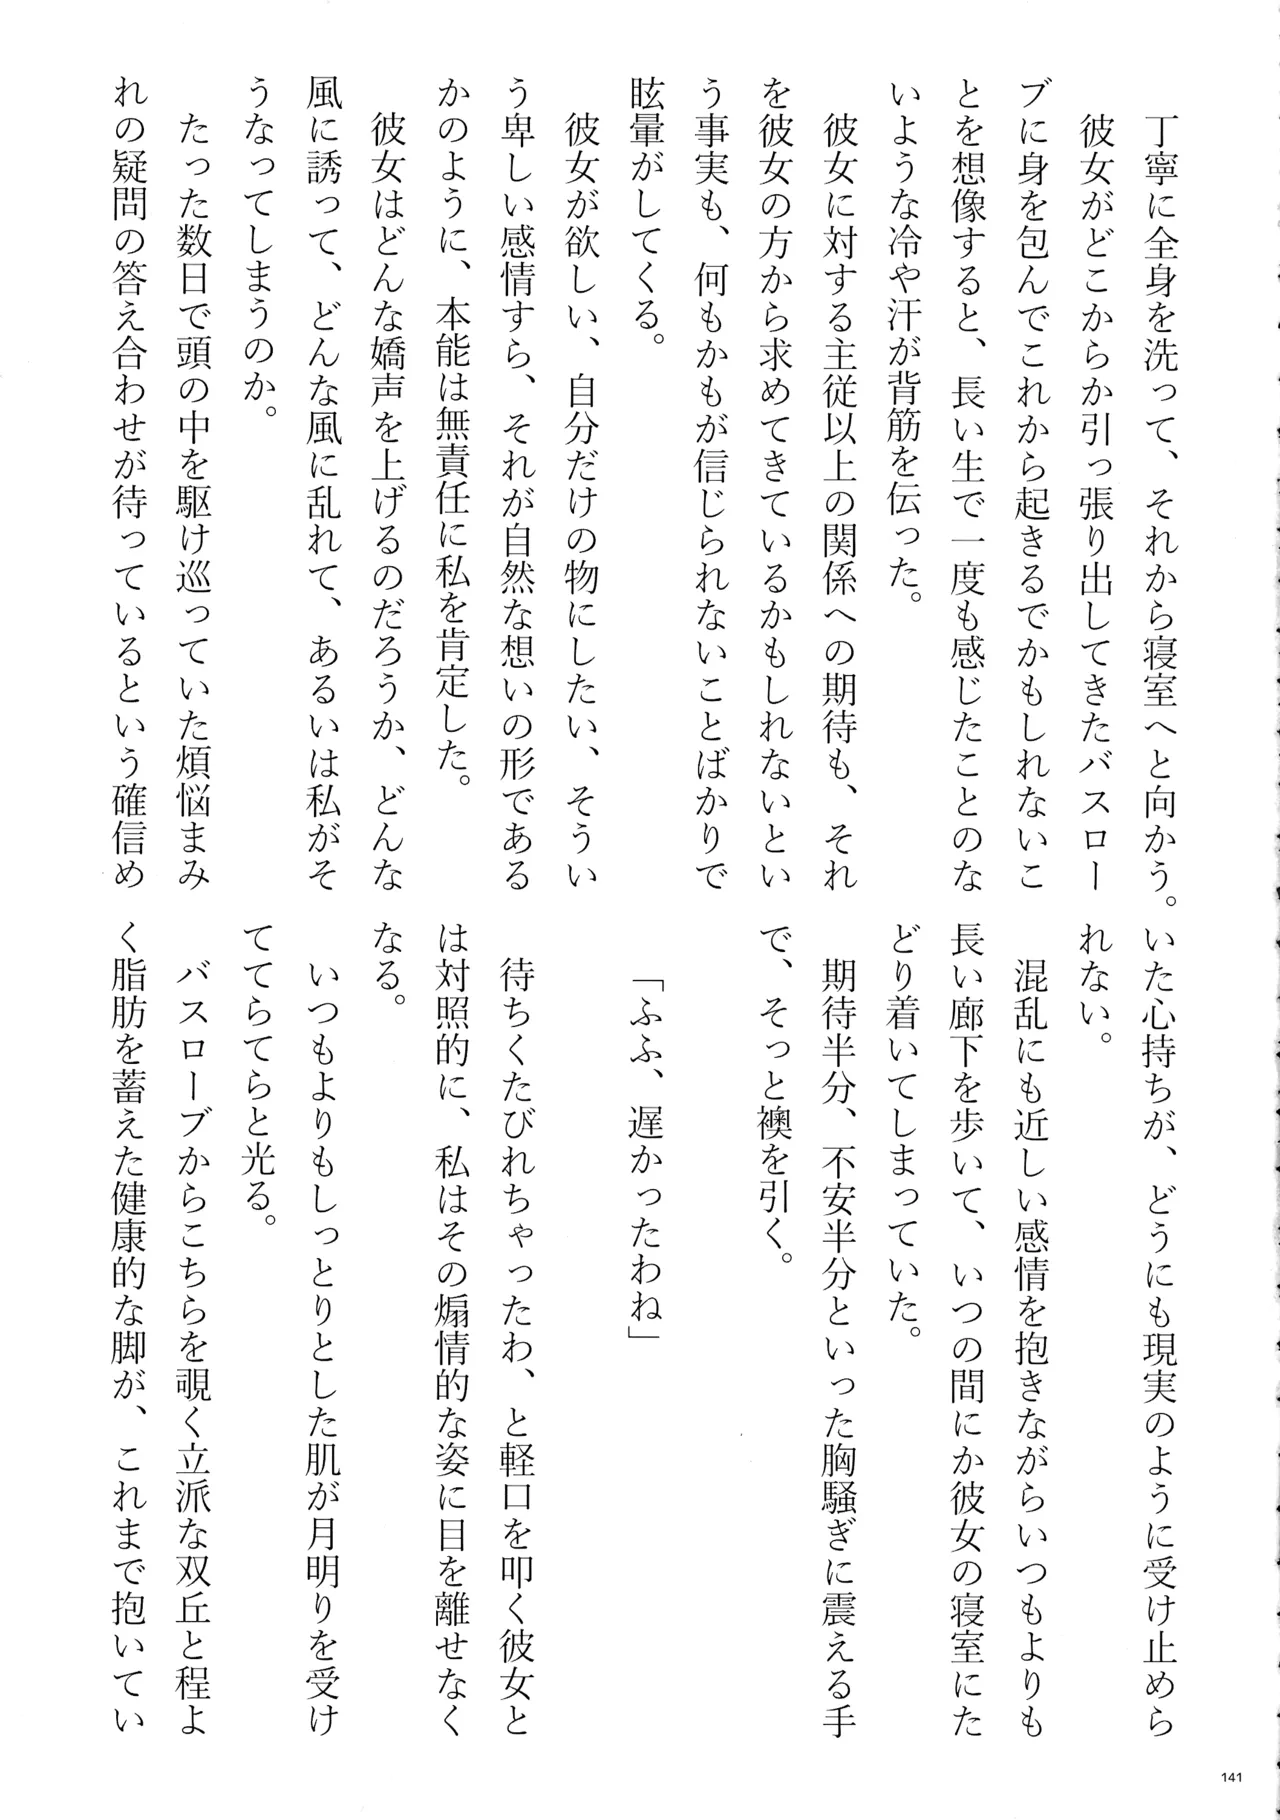 丁寧に全身を洗って、それから寝室へと向かう。
彼女がどこからか引っ張り出してきたバスロー
ブに身を包んでこれから起きるでかもしれないこ
とを想像すると、長い生で一度も感じたことのな
いような冷や汗が背筋を伝った。
彼女に対する主従以上の関係への期待も、それ
を彼女の方から求めてきているかもしれないとい
う事実も、何もかもが信じられないことばかりで
眩暈がしてくる。
彼女が欲しい、自分だけの物にしたい、そうい
う卑しい感情すら、それが自然な想いの形である
かのように、本能は無責任に私を肯定した。
彼女はどんな嬌声を上げるのだろうか、どんな
風に誘って、どんな風に乱れて、あるいは私がそ
うなってしまうのか。
たった数日で頭の中を駆け巡っていた煩悩まみ
れの疑問の答え合わせが待っているという確信め
いた心持ちが、どうにも現実のように受け止めら
れない。
混乱にも近しい感情を抱きながらいつもよりも
長い廊下を歩いて、いつの間にか彼女の寝室にた
どり着いてしまっていた。
期待半分、不安半分といった胸騒ぎに震える手
で、そっと襖を引く。
「ふふ、遅かったわね」
待ちくたびれちゃったわ、と軽口を叩く彼女と
は対照的に、私はその煽情的な姿に目を離せなく
なる。
いつもよりもしっとりとした肌が月明りを受け
ててらてらと光る。
バスローブからこちらを覗く立派な双丘と程よ
く脂肪を蓄えた健康的な脚が、これまで抱いてい
141